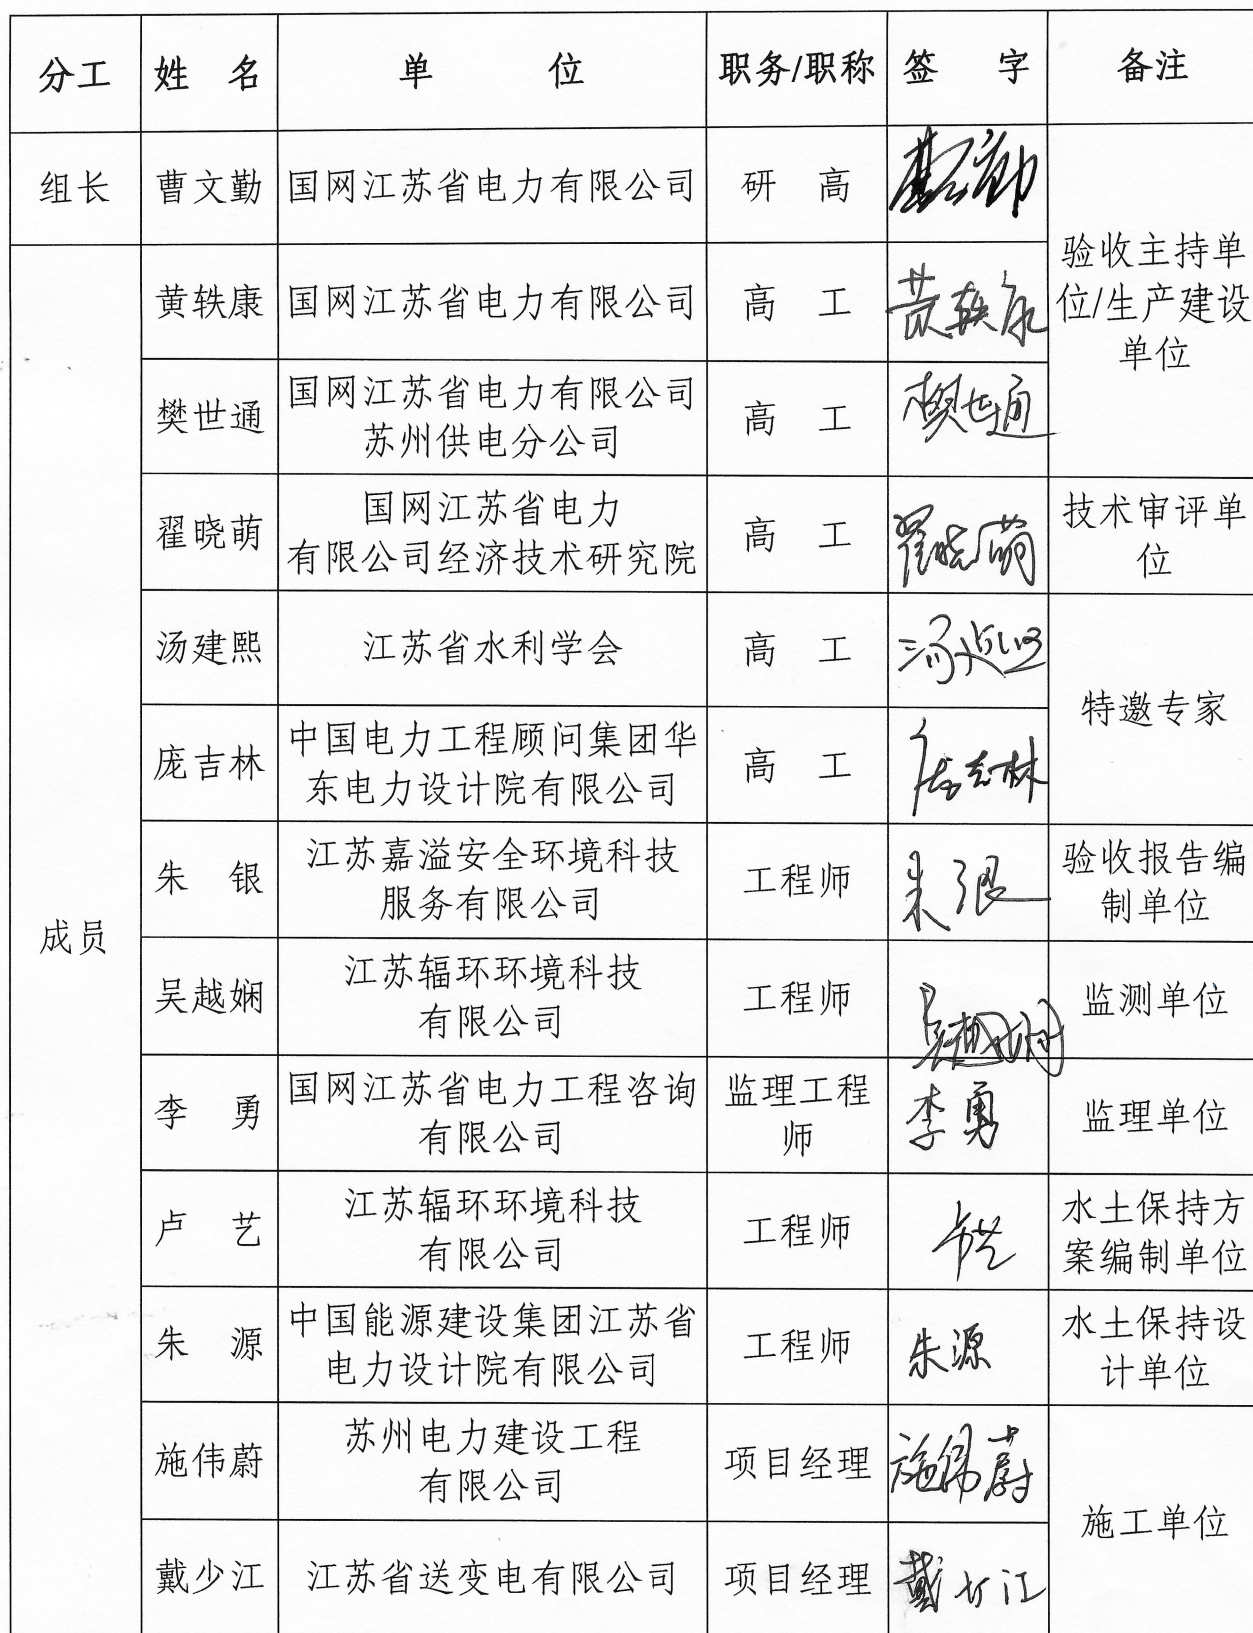 分工 姓 名 单 位 职务/职称 签 字 备注
组长 曹文勤 国网江苏省电力有限公司 研 高 曹文勤
验收主持单
位/生产建设
单位
成员
黄轶康 国网江苏省电力有限公司 高 工 黄轶康
樊世通 国网江苏省电力有限公司
苏州供电分公司 高 工 樊世通
翟晓萌 国网江苏省电力
有限公司经济技术研究院 高 工 翟晓萌 技术审评单
位
汤建熙 江苏省水利学会 高 工 汤建熙
特邀专家
庞吉林 中国电力工程顾问集团华
东电力设计院有限公司 高 工 庞吉林
朱 银 江苏嘉溢安全环境科技
服务有限公司 工程师 朱银 验收报告编
制单位
吴越娴 江苏辐环环境科技
有限公司 工程师 吴越娴 监测单位
李 勇 国网江苏省电力工程咨询
有限公司 监理工程
师 李勇 监理单位
卢 艺 江苏辐环环境科技
有限公司 工程师 卢艺 水土保持方
案编制单位
朱 源 中国能源建设集团江苏省
电力设计院有限公司 工程师 朱源 水土保持设
计单位
施伟蔚 苏州电力建设工程
有限公司 项目经理 施伟蔚
施工单位
戴少江 江苏省送变电有限公司 项目经理 戴少江